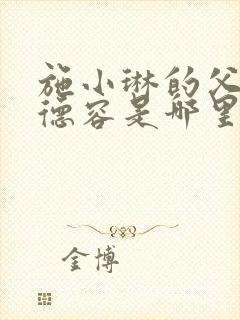 施小琳的父
德容是哪里
金博